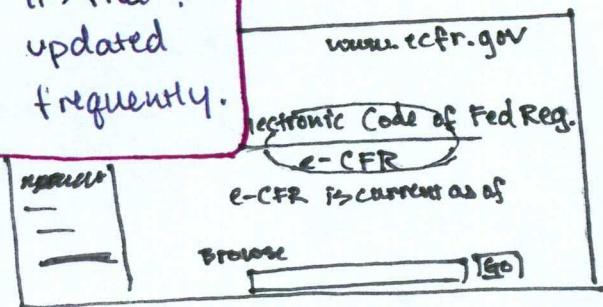 updated
frequently.
www.ecfr.gov
lectronic Code of Fed Reg.
e-CFR
e-CFR is current as of
Browse
Go